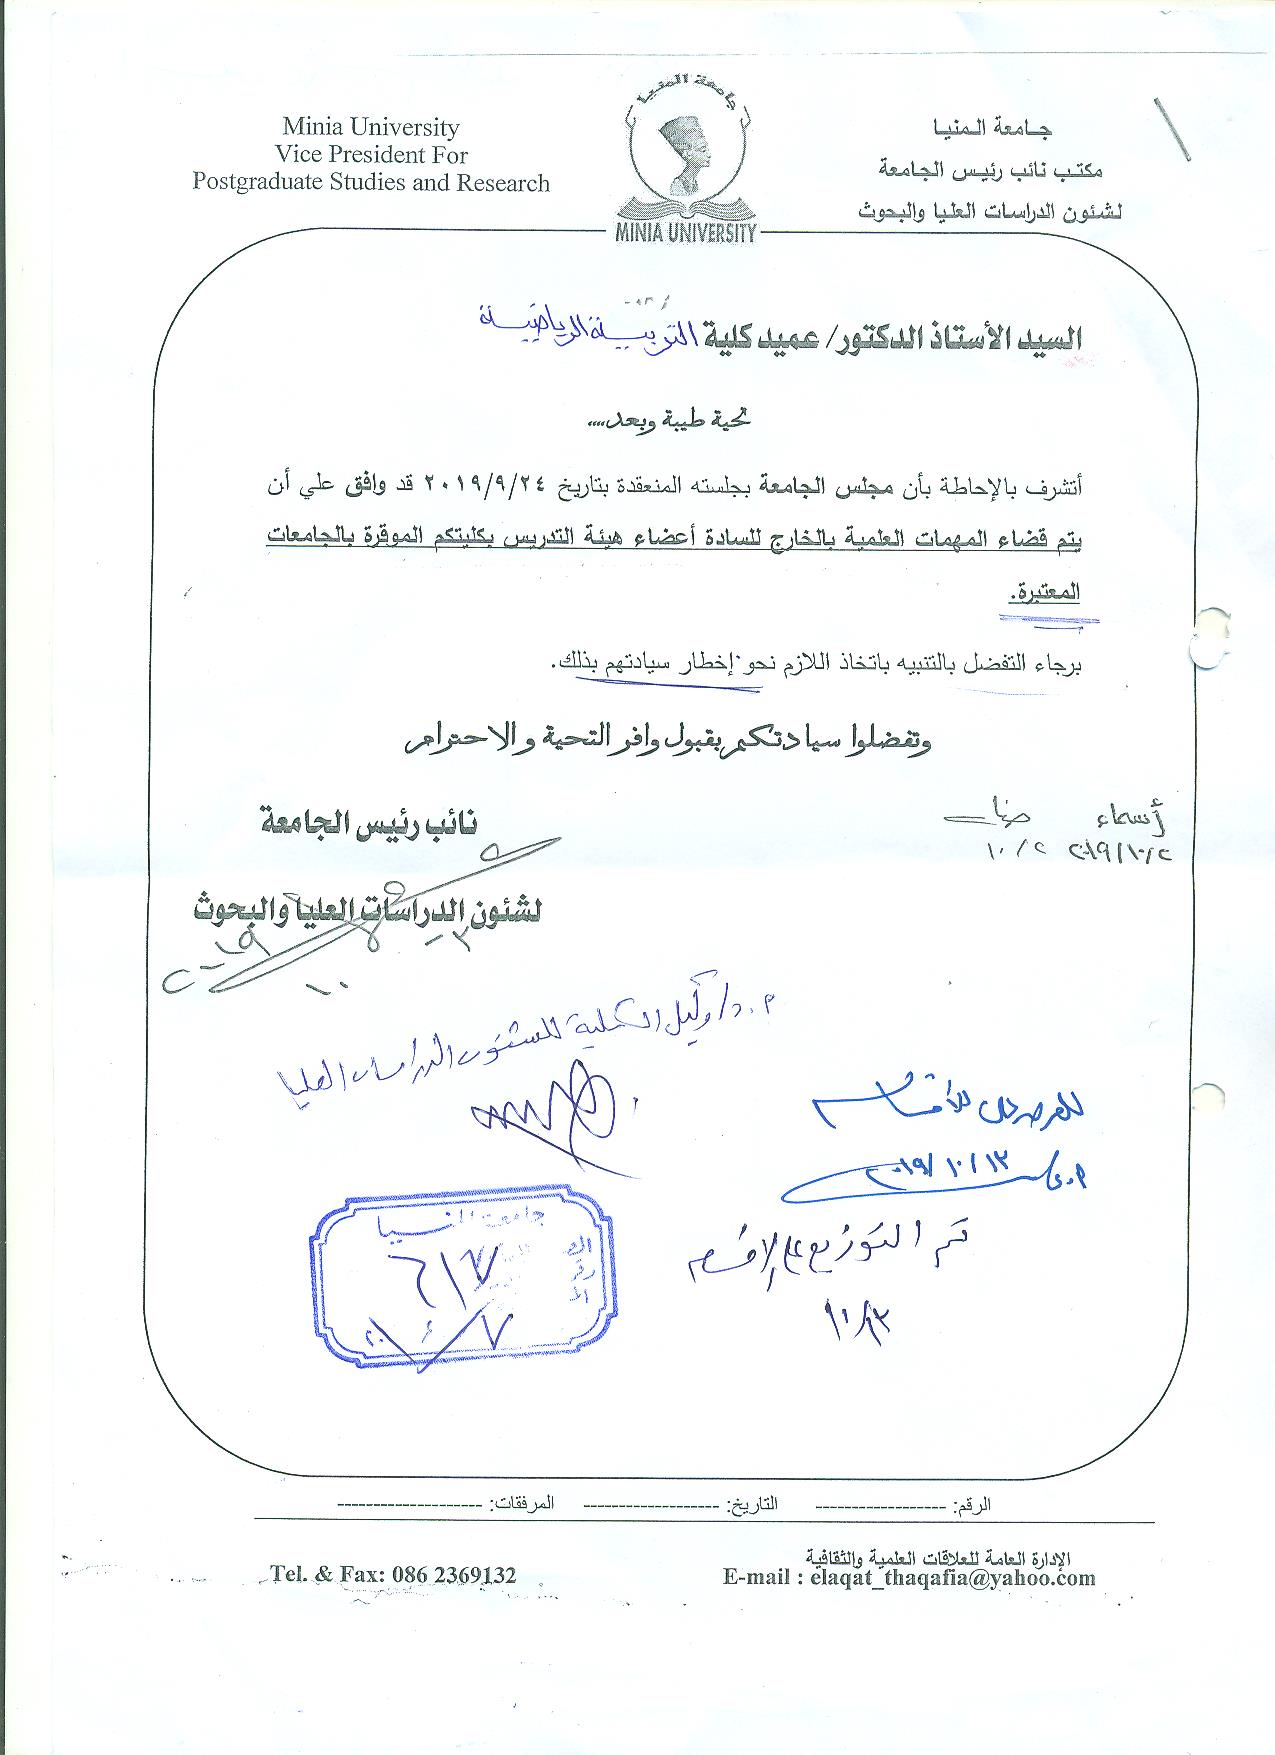 Minia University
Vice President For
Postgraduate Studies and Research
جامعة المنيا
MINIA UNIVERSITY
جامعة المنيا
مكتب نائب رئيس الجامعة
لشئون الدراسات العليا والبحوث
السيد الأستاذ الدكتور/ عميد كلية التربية الرياضية
تحية طيبة وبعد،،،،
أتشرف بالإحاطة بأن مجلس الجامعة بجلسته المنعقدة بتاريخ ٢٠١٩/٩/٢٤ قد وافق علي أن
يتم قضاء المهمات العلمية بالخارج للسادة أعضاء هيئة التدريس بكليتكم الموقرة بالجامعات
المعتبرة.
برجاء التفضل بالتنبيه باتخاذ اللازم نحو إخطار سيادتهم بذلك.
وتفضلوا سيادتكم بقبول وافر التحية والاحترام
أسماء
٢٠١٩/١٠/٢ ١٠/٢
نائب رئيس الجامعة
لشئون الدراسات العليا والبحوث
أ.د/ وكيل الكلية لشئون الدراسات العليا
للعرض على الأقسام
٢٠١٩/١٠/١٣
تم التوزيع على الأقسام
١٠/١٣
جامعة المنيا
٦١٧
الرقم: ------------------ التاريخ: ------------------- المرفقات: --------------------
الإدارة العامة للعلاقات العلمية والثقافية
Tel. & Fax: 086 2369132 E-mail : elaqat_thaqafia@yahoo.com